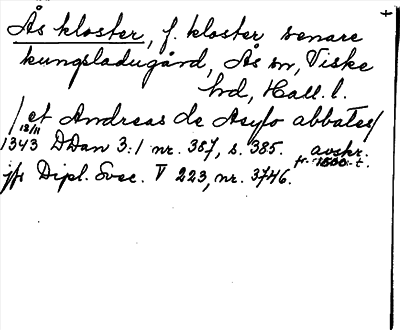 +
Ås kloster, f. kloster senare
kungsladugård, Ås sn, Viske
hd, Hall. l.
/et Andreas de Asylo abbates/
18/11
1343 DDan 3:1 nr. 387, s. 385. avskr.
fr. 1500-t.
jfr Dipl. Svec. V 223, nr. 3746.